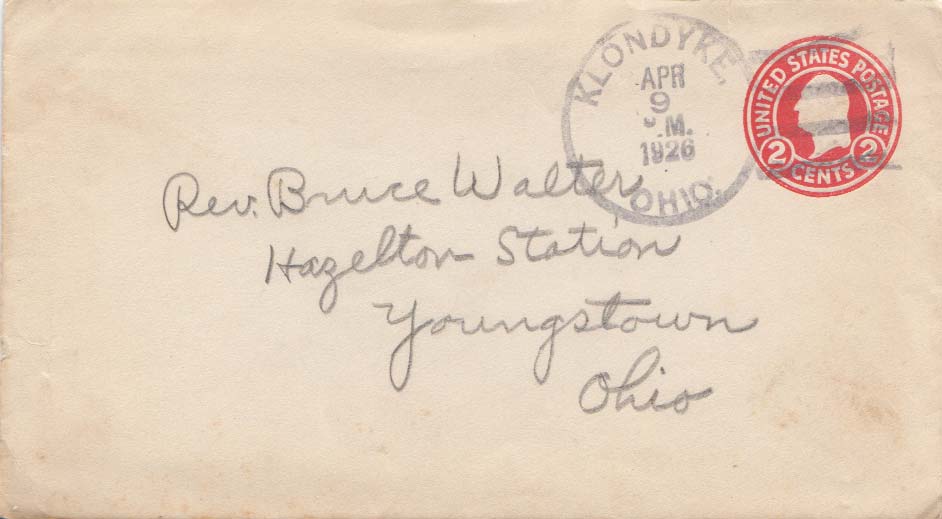 KLONDYKE,
APR
9
M.
1926
OHIO.
UNITED STATES POSTAGE
2 CENTS 2
Rev. Bruce Walter
Hazelton Station
Youngstown
Ohio